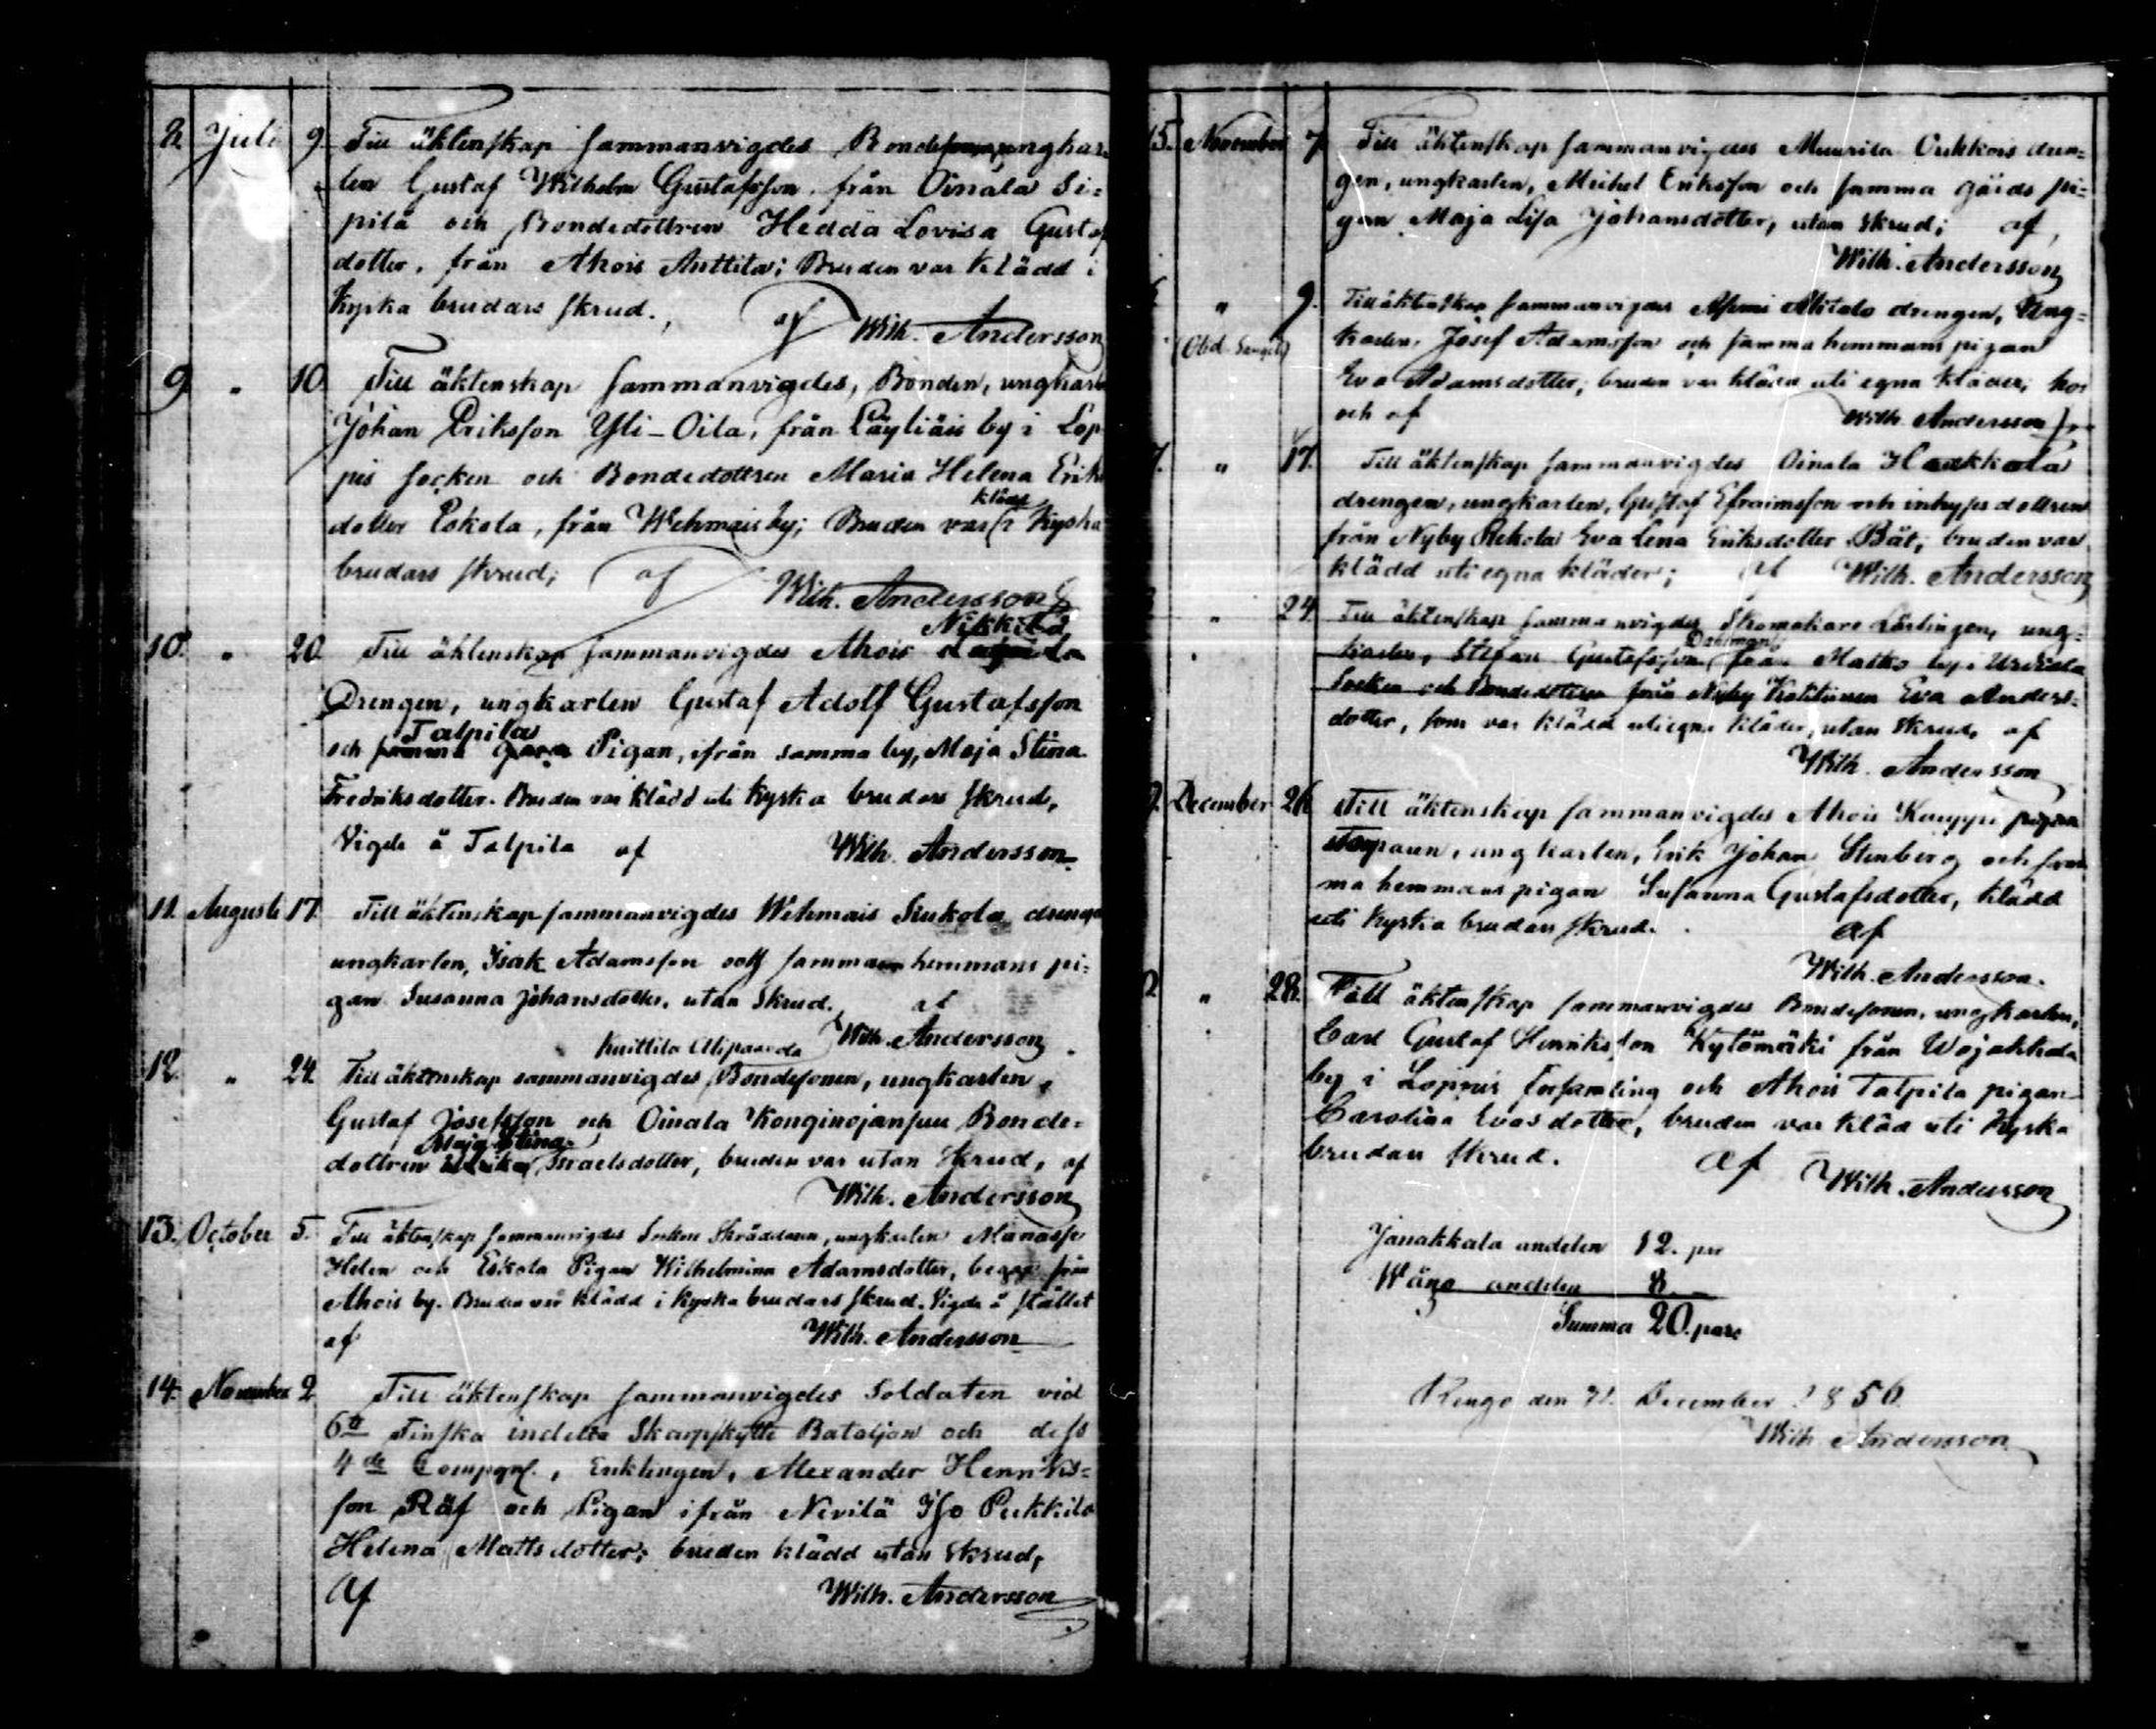 8. Juli 9. Till äktenskap sammanvigdes Bondesonen ungkar-
len Gustaf Wilhelm Gustafsson, från Oinala Si=
pilä och Bondedottren Hedda Lovisa Gustaf
dotter, från Ahois Anttila; Bruden var klädd i
kyska brudars skrud., af Wilh. Andersson
9. " 10. Till äktenskap sammanvigdes, Bonden, ungkarlen
Johan Eriksson Yli-Oila, från Läyliäis by i Lop-
pis socken och Bondedottren Maria Helena Eriks
klädd
dotter Eskola, från Wehmais by; Bruden var i kyska
brudars skrud; af Wilh. Andersson
Nikkilä
10. " 20. Till äktenskap sammanvigdes Ahois
Drengen, ungkarlen Gustaf Adolf Gustafsson
Talpila
och samma Pigan, ifrån samma by, Maja Stina
Fredriksdotter. Bruden var klädd uti kyska brudars skrud,
Vigde å Talpila af Wilh. Andersson
11. Augusti 17. Till äktenskap sammanvigdes Wehmais Siukola drengen
ungkarlen, Isak Adamsson och samma hemmans pi=
gan Susanna Johansdotter, utan skrud. af
Wilh. Andersson
Knittilä Alipaavola
12. " 24. Till äktenskap sammanvigdes Bondesonen, ungkarlen,
Gustaf Josefsson och Oinala Konginojansuu Bonde=
Maja Stina
dottren Ulrika Israelsdotter, bruden var utan skrud, af
Wilh. Andersson
13. October 5. Till äktenskap sammanvigdes Socken Skräddaren, ungkarlen Manasse
Helen och Eskola Pigan Wilhelmina Adamsdotter, begge från
Ahois by. Bruden var klädd i kyska brudars skrud. Vigde å stället
af Wilh. Andersson
14. November 2. Till äktenskap sammanvigdes Soldaten vid
6te Finska indelta Skarpskytte Bataljon och dess
4de Compani., Enklingen, Alexander Henriks=
son Räf och Pigan ifrån Nevilä Iso Pukkila
Helena Mattsdotter; bruden klädd utan skrud,
Af Wilh. Andersson
15. November 7. Till äktenskap sammanvigdes Muurila Oukkois dren=
gen, ungkarlen, Michel Eriksson och samma gårds pi=
gan Maja Lisa Johansdotter, utan skrud; af,
Wilh. Andersson
" 9. Till äktenskap sammanvigdes Alitalo drengen, Ung=
karlen, Josef Adamsson och samma hemmans pigan
Eva Adamsdotter; bruden var klädd uti egna kläder; hos
och af Wilh. Andersson
7. " 17. Till äktenskap sammanvigdes Oinala Haukkala
drengen, ungkarlen, Gustaf Efraimsson och inhyses dottren
från Nyby Rekola Eva Lena Eriksdotter Båt; bruden var
klädd uti egna kläder; af Wilh. Andersson
" 24. Till äktenskap sammanvigdes Skomakare Lärlingen, ung=
Dahlman
karlen, Stefan Gustafsson från Matko by i Urdiala
Socken och Bondedottren från Nyby Kotitunen Eva Anders=
dotter, som var klädd uti egna kläder, utan skrud, af
Wilh. Andersson
9. December 26. Till äktenskap sammanvigdes Ahois Kauppi
Torparen, ungkarlen, Erik Johan Stenberg och sam
ma hemmans pigan Susanna Gustafsdotter, klädd
uti kyska brudars skrud. af
Wilh. Andersson.
" 28. Till äktenskap sammanvigdes Bondesonen, ungkarlen,
Carl Gustaf Henriksson Kytömäki från Wojakkala
by i Loppis Församling och Ahois Talpila pigan
Carolina Evasdotter, bruden var klädd uti kyska
brudars skrud. Af Wilh. Andersson
Janakkala andelen 12. par
Wånå andelen 8. "
Summa 20. pare
Rengo den 31. December 1856
Wilh. Andersson